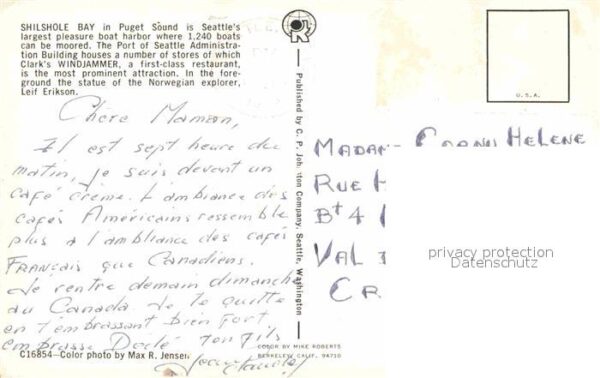 SHILSHOLE BAY in Puget Sound is Seattle's
largest pleasure boat harbor where 1,240 boats
can be moored. The Port of Seattle Administra-
tion Building houses a number of stores of which
Clark's WINDJAMMER, a first-class restaurant,
is the most prominent attraction. In the fore-
ground the statue of the Norwegian explorer,
Leif Erikson.
Chère Maman,
Il est sept heure du
matin, je suis devant un
café crème. L'ambiance des
cafés Américains ressemble
plus à l'ambiance des cafés
Français que Canadiens.
Je rentre demain dimanche
au Canada. Je te quitte
en t'embrassant bien fort
embrasse Dédé ton fils
Jean Claude
C16854—Color photo by Max R. Jensen
Published by C. P. Johnston Company, Seattle, Washington
COLOR BY MIKE ROBERTS
BERKELEY, CALIF. 94710
U.S.A.
MADAME HELENE
RUE
Bt 4
VAL
privacy protection
Datenschutz